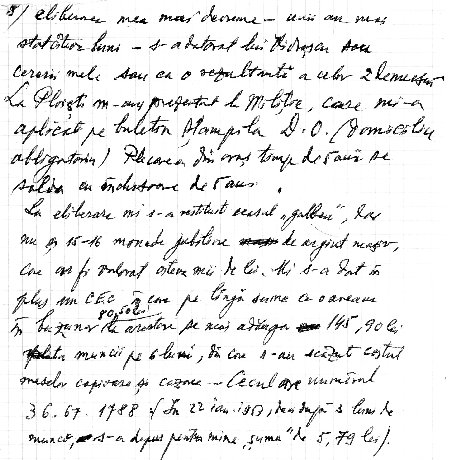 8) eliberarea mea mai devreme – unii au mas
statătion luni – s-a datorat lui Vidrașcu sau
cererii mele sau ca o rezultantă a celor 2 demersuri
La Ploiești m-am prezentat la Miliție, care mi-a
aplicat pe buletin ștampila D.O. (domiciliu
obligatoriu) Plecarea din oraș timp de 5 ani se
solda cu închisoare de 5 ani.
La eliberare mi s-a restituit ceasul „galben”, dar
nu și 15-16 monede jubiliare de argint masiv,
care ar fi valorat câteva mii de lei. Mi s-a dat în
plus un CEC în care pe lângă suma ce o aveam
în buzunar la arestare 80,50 lei se mai adăuga 145,90 lei
plata muncii pe 6 luni, din care s-au scăzut costul
meselor copioase și cazarea – Cecul are numărul
36.67.1788 (În 22 ian. 1957, deci după 3 luni de
muncă, s-a depus pentru mine „suma” de 5,79 lei).